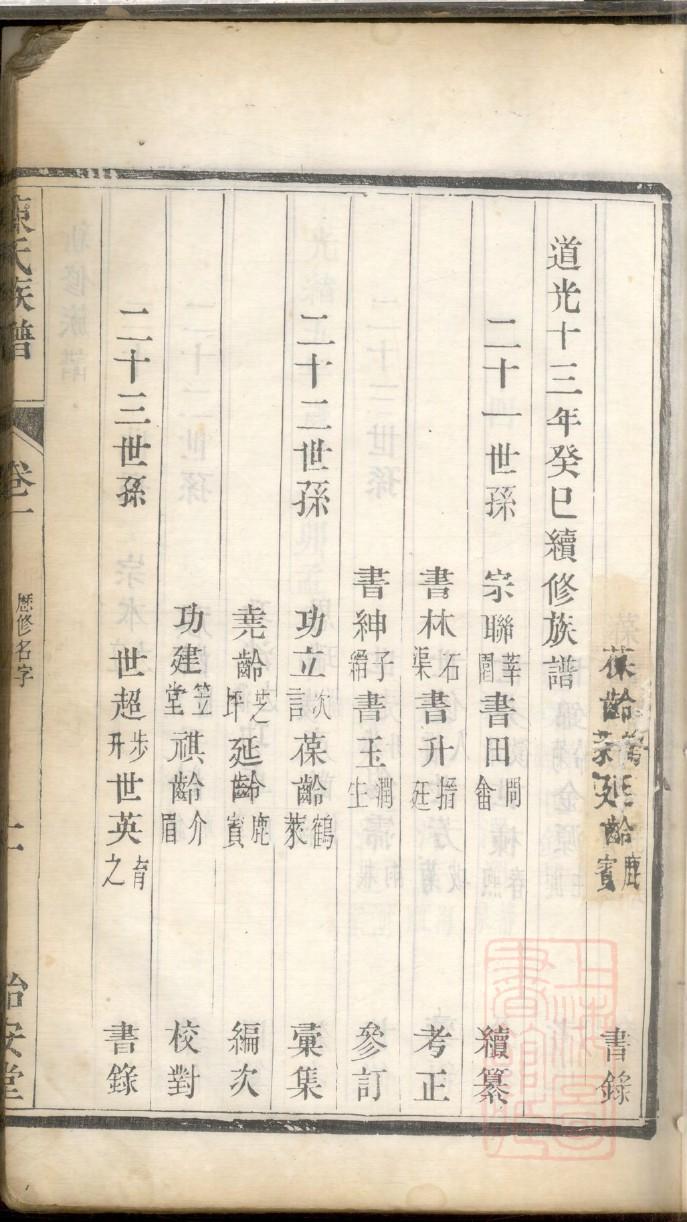 葆齡鶴萊延齡鹿賓 書錄
道光十三年癸巳續修族譜
二十一世孫 宗聯莘圃書田問畬 續纂
書林石渠書升搢廷 考正
書紳子縉書玉潤生 參訂
二十二世孫 功立次言葆齡鶴萊 彙集
堯齡芝坪延齡鹿賓 編次
功建笠堂祺齡介眉 校對
二十三世孫 世超步升世英育之 書錄
陳氏族譜 卷一 歷修名字 二 治安堂